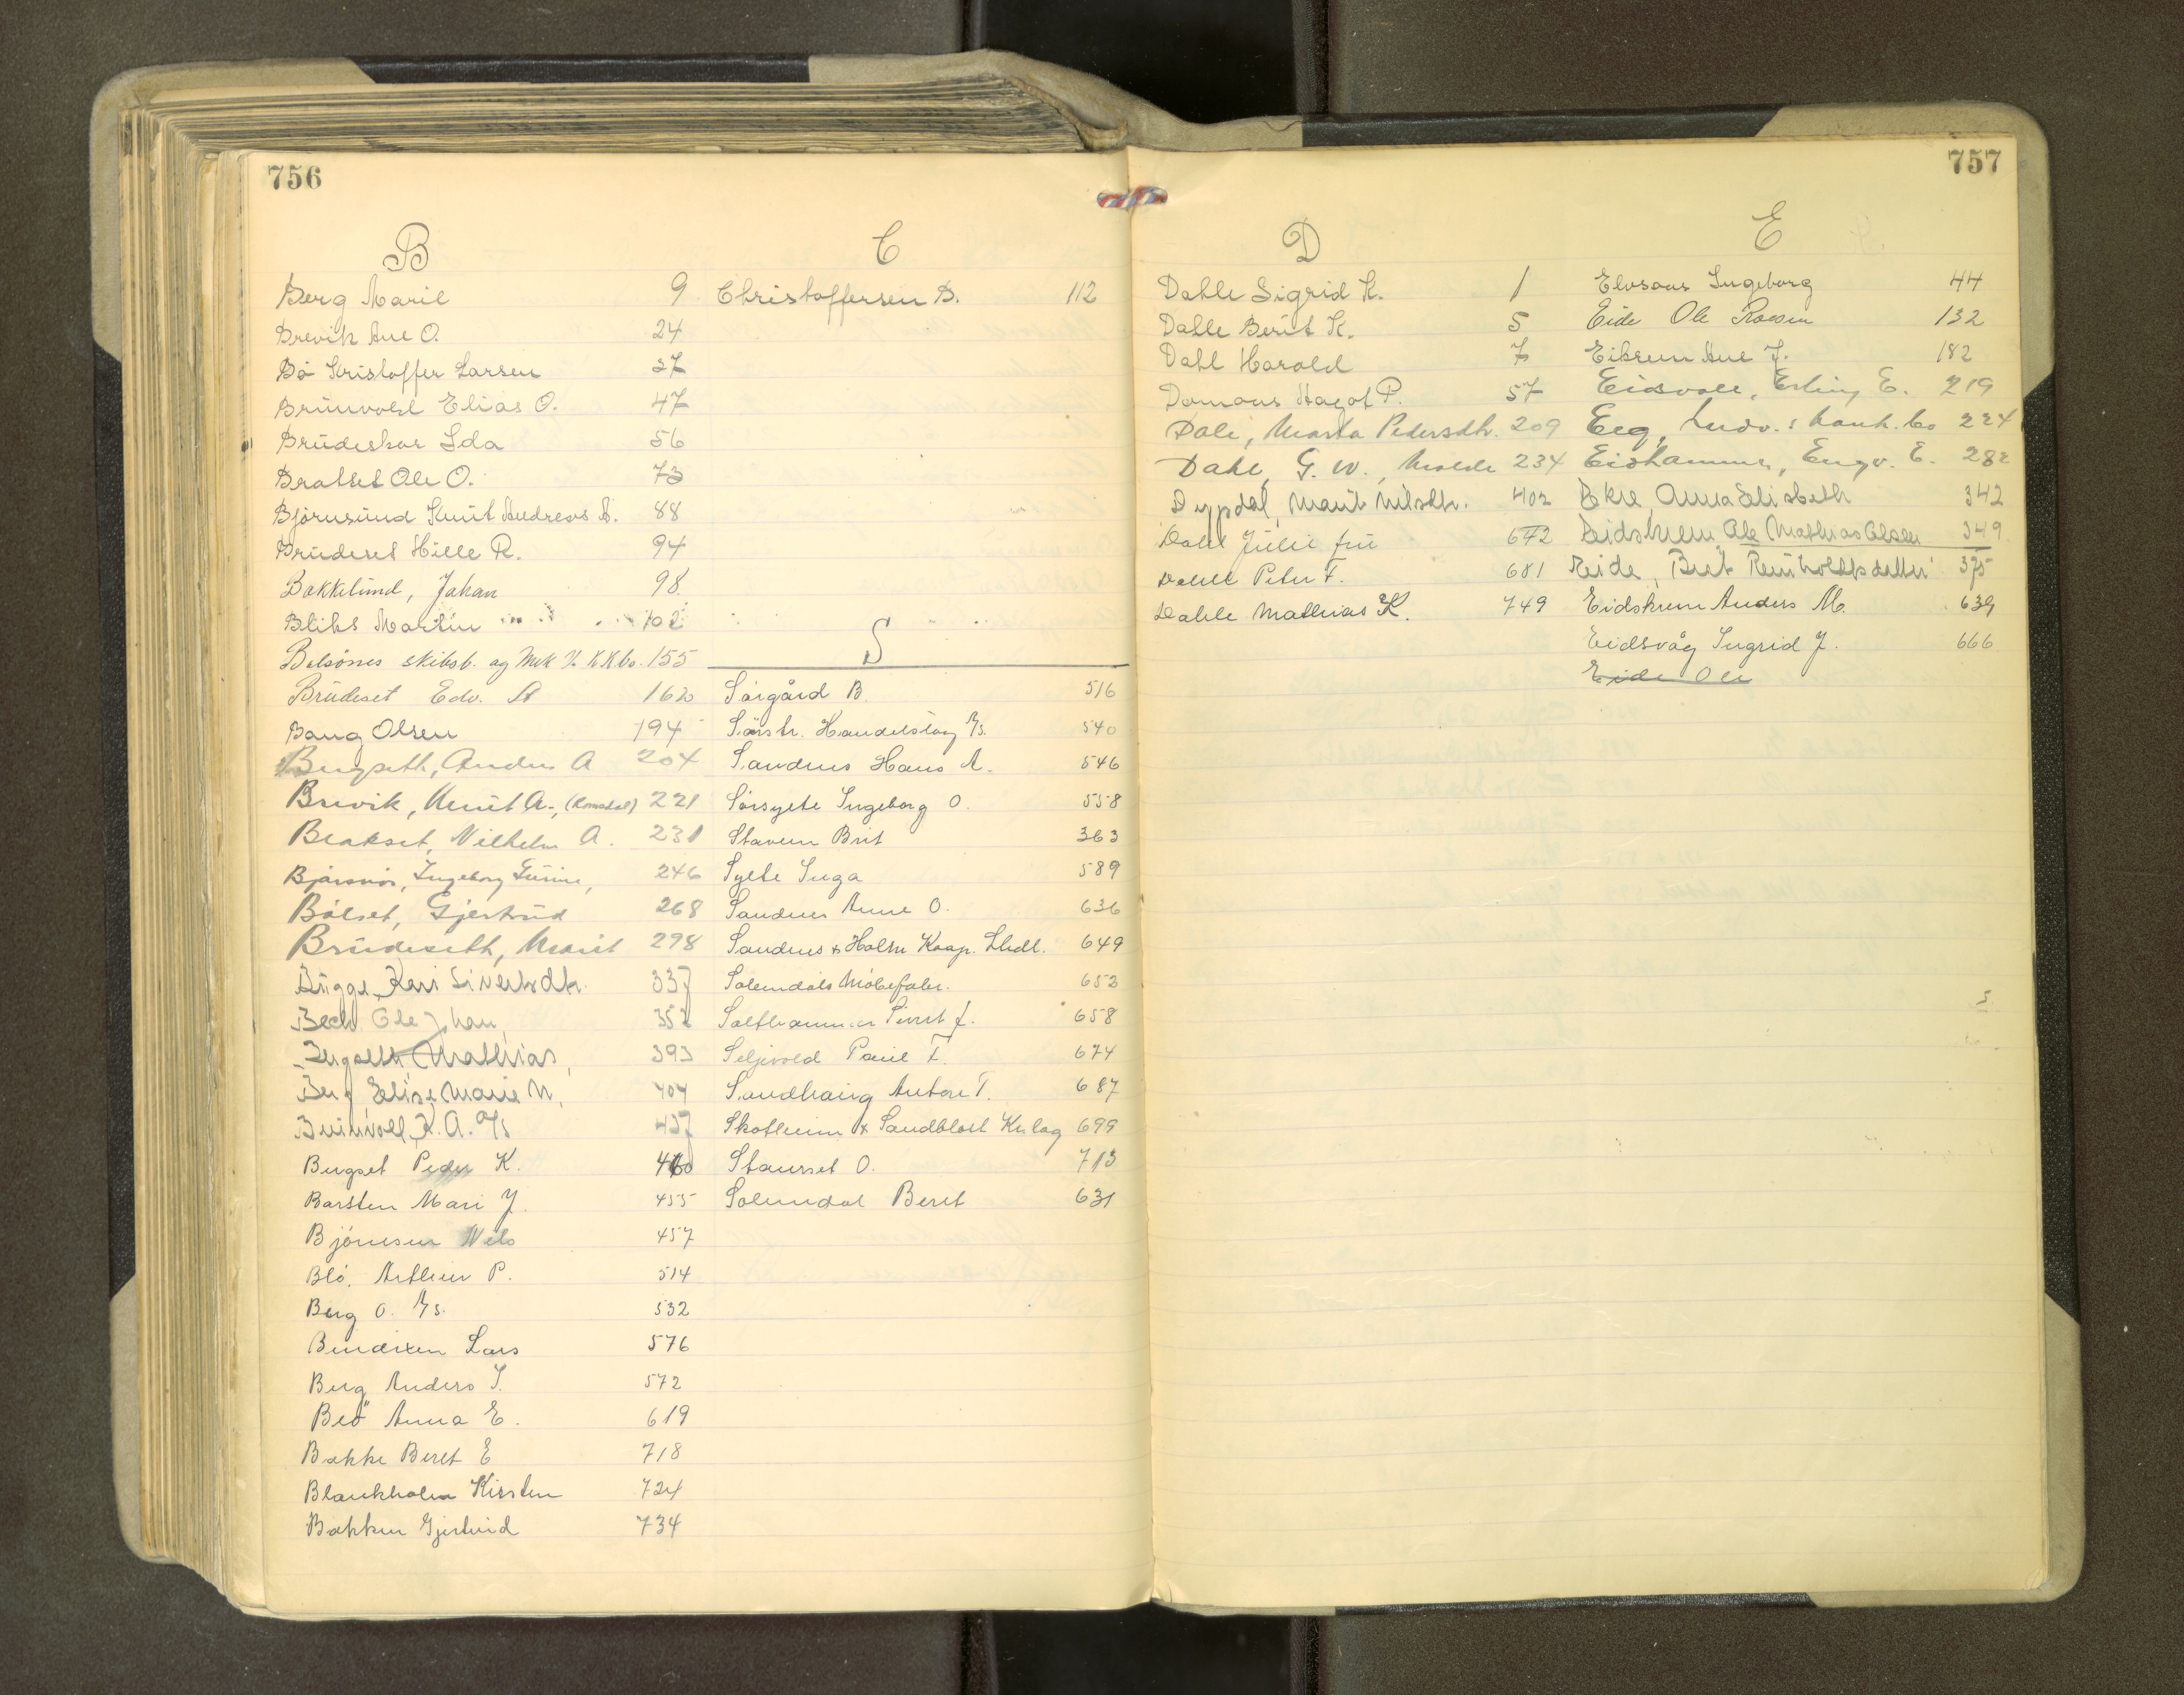 756
B
Berg Marie 9
Brevik Ane O. 24
Bö Kristoffer Larsen 37
Brunvold Elias O. 47
Brüdeskar Ida 56
Bratset Ole O. 73
Björnsünd Knüt Andreas A. 88
Brüdeset Hille R. 94
Bakkelünd, Johan 98
Martin 102
Bolsönes skibsb. og Mek V. 155
Brüdeset Edv. A 162
Baug Olsen 194
Bergseth, Anders A 204
Brevik, Knüt A., (Romsdal) 221
Brakset, Vilhelm A. 231
Ingeborg 246
Bölset, Gjertrüd 268
Brüdeseth, Marit 298
Bügge, Kari Sivertsdtr. 337
Bech Ole Johan, 352
Mathias, 393
Berg Elise Marie N. 404
Brünvoll, K. A. A/s 437
Bergset Peder K. 460
Barsten Mari J. 455
Björnsen Nils 457
Blö. Arthur P. 514
Berg O. A/s. 532
Bendixen Lars 576
Berg Anders I. 572
Beö Anna E. 619
Bakke Beret E 718
Blankholm Kirsten 724
Bakken Gjertrüd 734
C
Christoffersen B. 112
S
Sörgård B. 516
Sörstr. Handelslag A/s. 540
Sandnes Hans A. 546
Sörsylte Ingeborg O. 558
Stavem Brit 363
Sylte Inga 589
Sandnes Anne O. 636
Sandnes & Holm Koop. Lhdl. 649
Solemdals Möbelfabr. 652
Salthammer Sivert J. 658
Seljevold Paül T. 674
Sandhaüg Antore T. 687
Skotheim & Sandblåst Kr. lag 699
Staurset O. 713
Solemdal Beret 631
757
D
Dahle Sigrid K. 1
Dahle Berit K. 5
Dahl Harald 7
P. 57
Dale, Marta Pedersdtr. 209
Dahl, G. W., Molde 234
Dypdal, Marit Nilsdtr. 402
Dahl Jülie frü 672
Dahle Peter T. 681
Dahle Mathias K. 749
E
Elvsaas Ingeborg 44
Eide Ole 132
Eikrem Ane J. 182
Eidsvold, Erling E. 219
Eeg, Ludv. 224
Eidhammer, Engv. E. 282
Ekre, Anna Elisbeth 342
Eidskrem, Ole Mathias Olsen 349
Eide, Brit Reinholdtsdatter 375
Eidskrem Anders M. 639
Eidsvåg Ingrid J. 666
Eide Ole